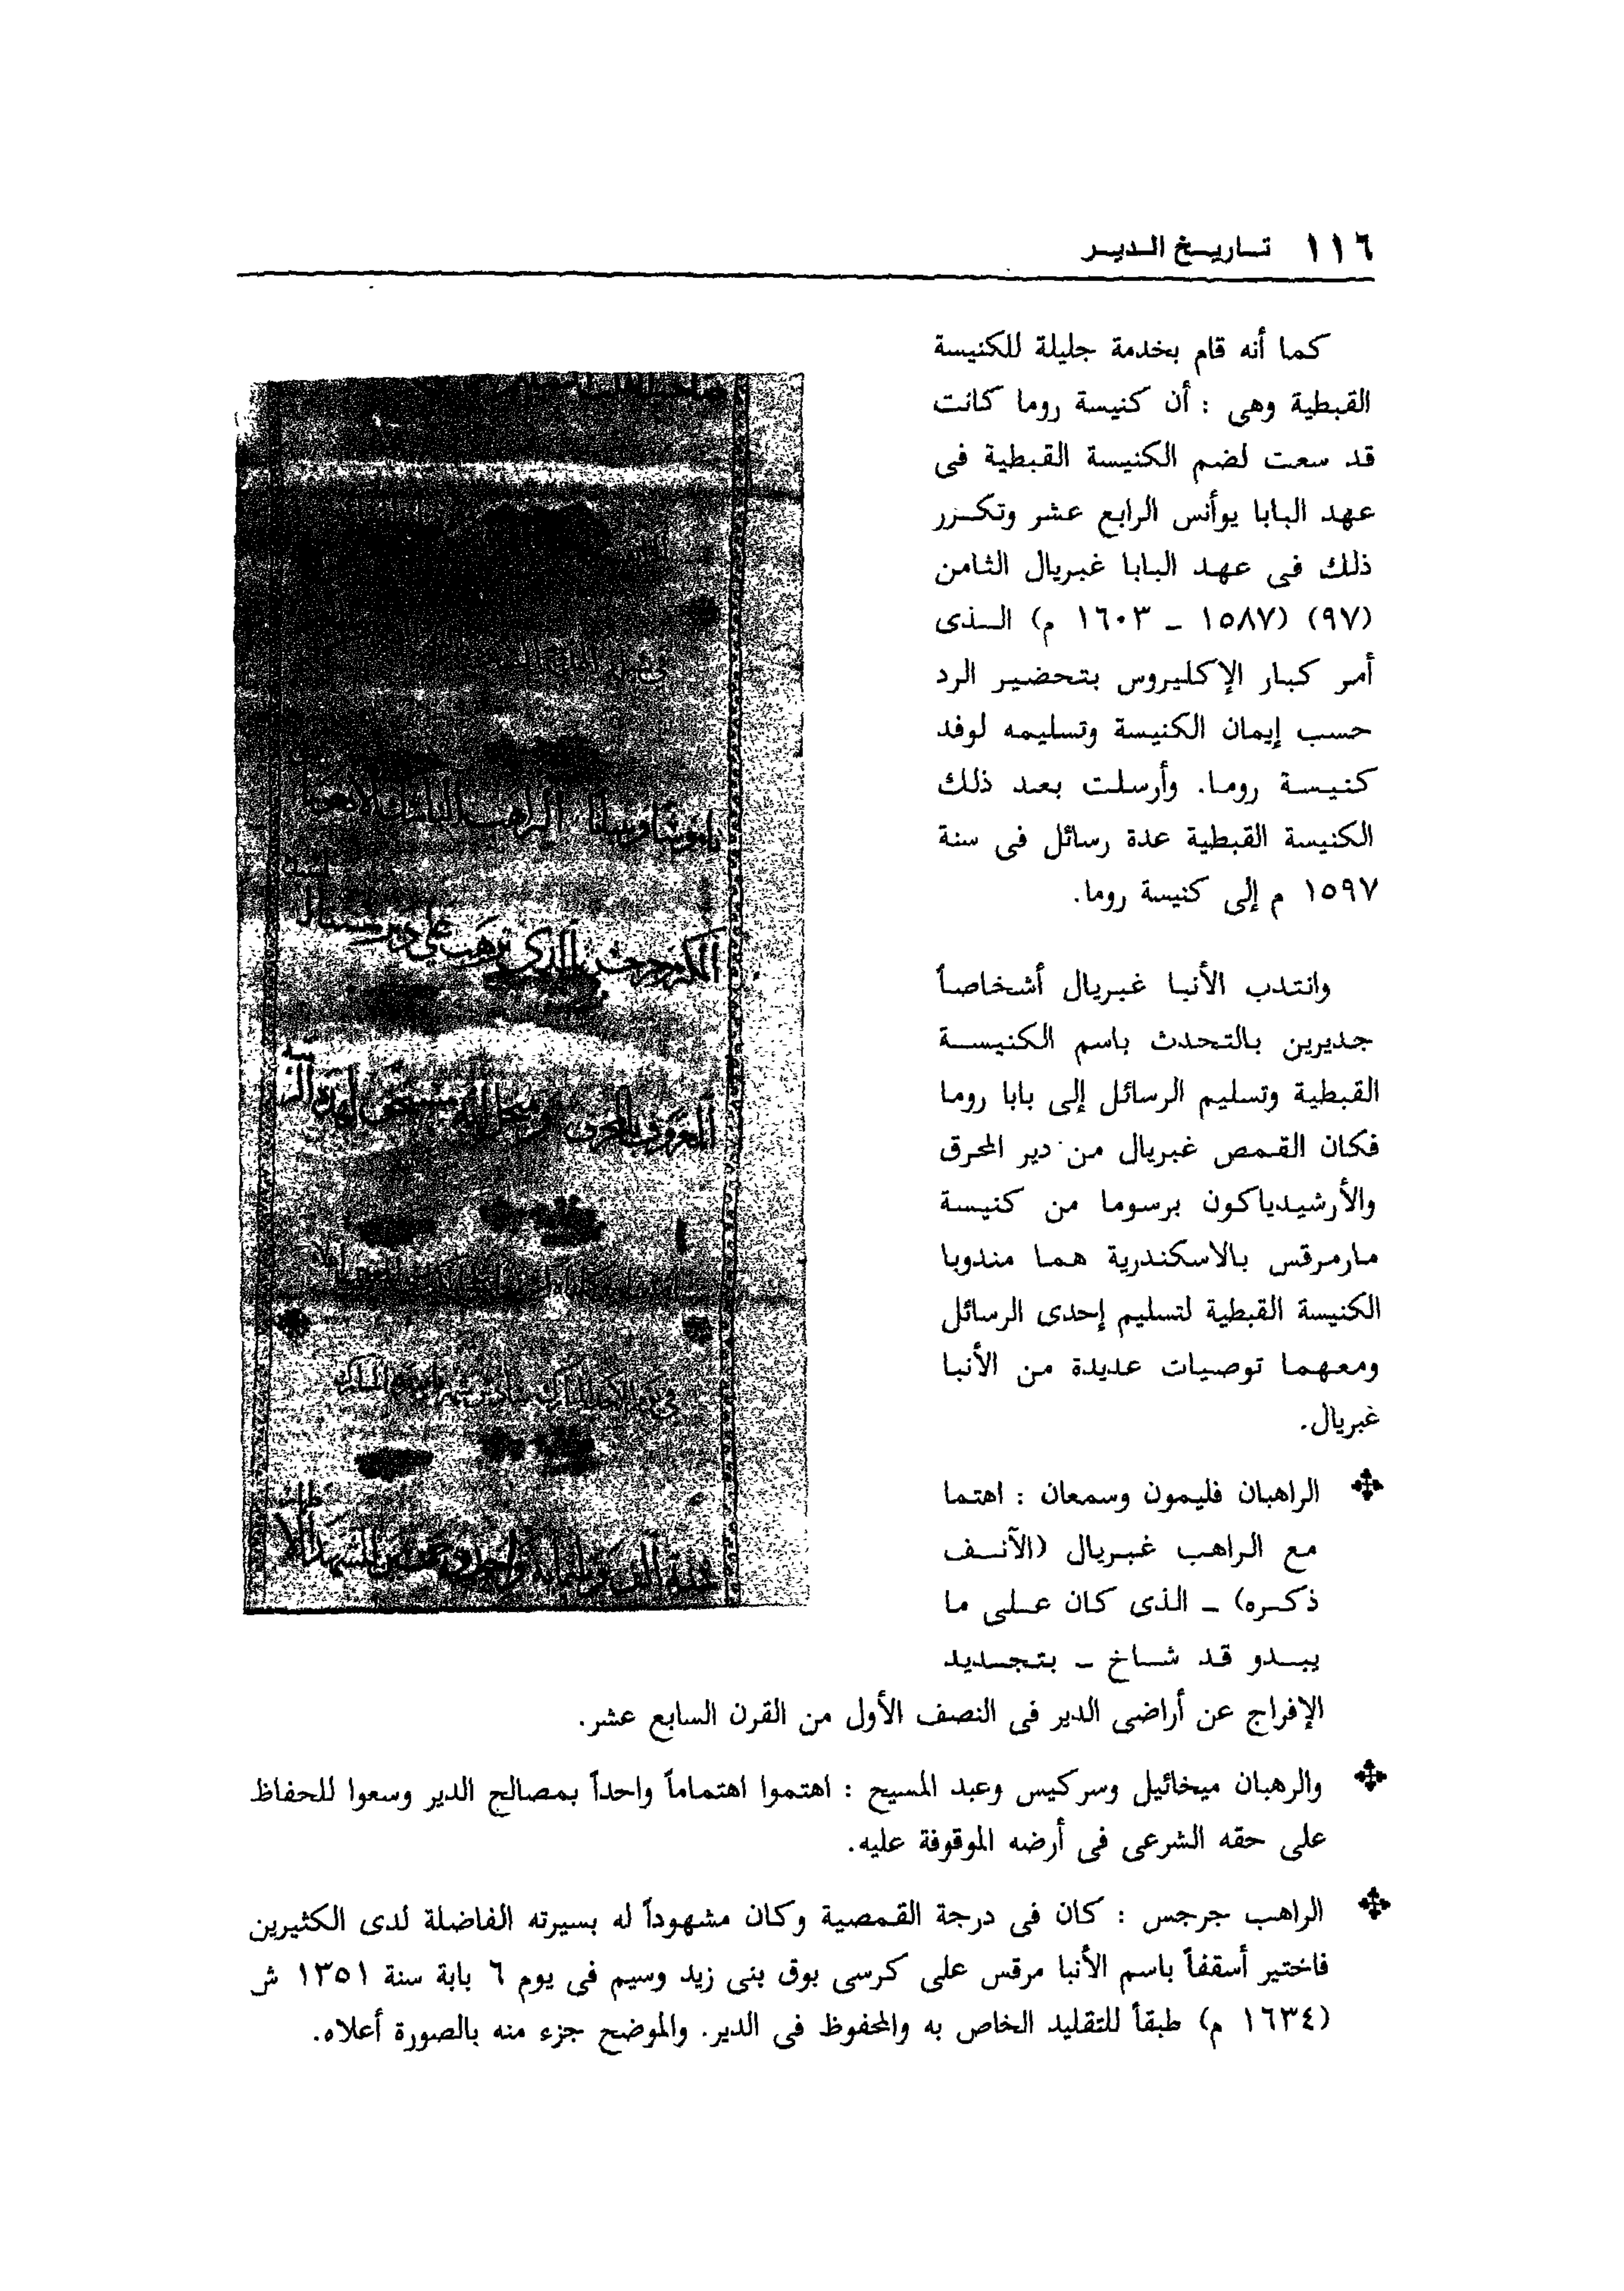 ١١٦ تاريخ الدير
كما أنه قام بخدمة جليلة للكنيسة
القبطية وهى : أن كنيسة روما كانت
قد سعت لضم الكنيسة القبطية فى
عهد البابا يوأنس الرابع عشر وتكرر
ذلك فى عهد البابا غبريال الثامن
(٩٧) (١٥٨٧ ــ ١٦٠٣ م) الذى
أمر كبار الإكليروس بتحضير الرد
حسب إيمان الكنيسة وتسليمه لوفد
كنيسة روما. وأرسلت بعد ذلك
الكنيسة القبطية عدة رسائل فى سنة
١٥٩٧ م إلى كنيسة روما.
وانتدب الأنبا غبريال أشخاصاً
جديرين بالتحدث باسم الكنيسة
القبطية وتسليم الرسائل إلى بابا روما
فكان القمص غبريال من دير المحرق
والأرشيدياكون برسوما من كنيسة
مارمرقس بالاسكندرية هما مندوبا
الكنيسة القبطية لتسليم إحدى الرسائل
ومعهما توصيات عديدة من الأنبا
غبريال.
الراهبان فليمون وسمعان : اهتما
مع الراهب غبريال (الآنف
ذكره) ــ الذى كان على ما
يبدو قد شاخ ــ بتجديد
الإفراج عن أراضى الدير فى النصف الأول من القرن السابع عشر.
والرهبان ميخائيل وسركيس وعبد المسيح : اهتموا اهتماماً واحداً بمصالح الدير وسعوا للحفاظ
على حقه الشرعى فى أرضه الموقوفة عليه.
الراهب جرجس : كان فى درجة القمصية وكان مشهوداً له بسيرته الفاضلة لدى الكثيرين
فاختير أسقفاً باسم الأنبا مرقس على كرسى بوق بنى زيد وسيم فى يوم ٦ بابة سنة ١٣٥١ ش
(١٦٣٤ م) طبقاً للتقليد الخاص به والمحفوظ فى الدير. والموضح جزء منه بالصورة أعلاه.